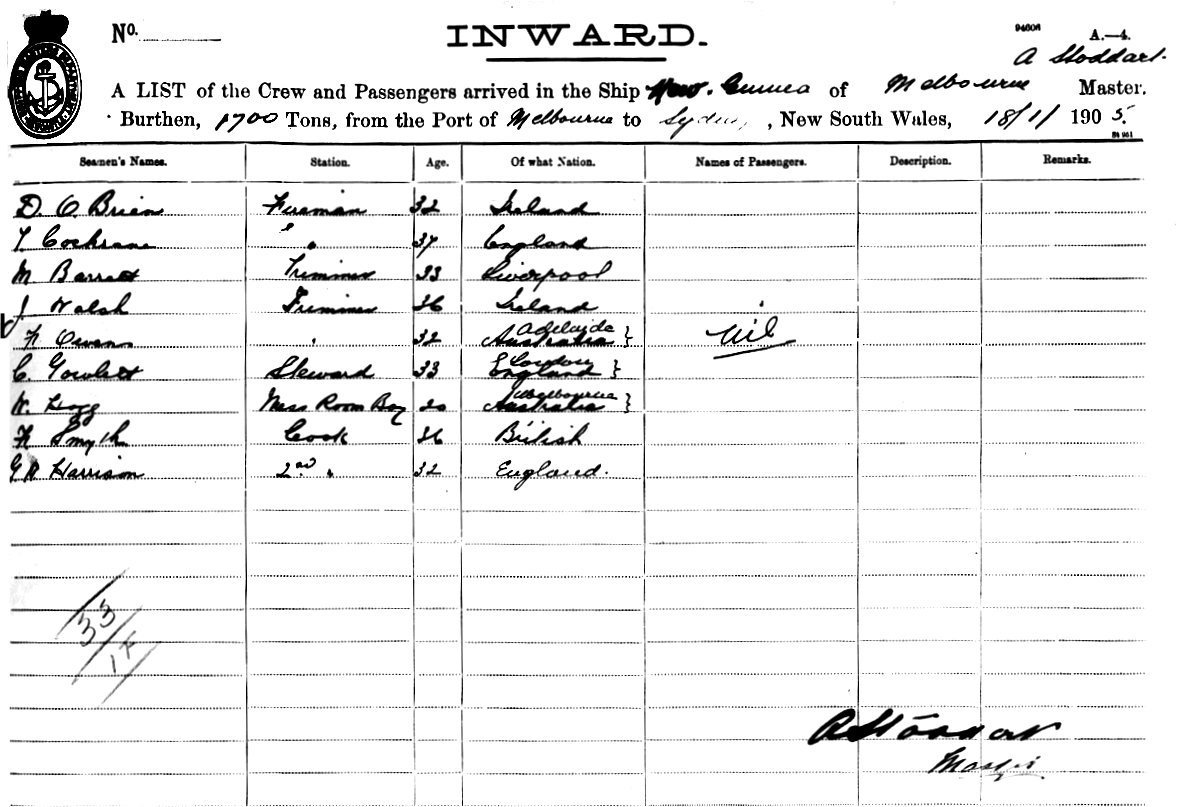 No. INWARD. 94606 A.—4.
A Stoddart.
A LIST of the Crew and Passengers arrived in the Ship New Guinea of Melbourne Master.
Burthen, 1700 Tons, from the Port of Melbourne to Sydney, New South Wales, 18/11/ 1905.
Seamen's Names. Station. Age. Of what Nation. Names of Passengers. Description. Remarks.
D. O Brien Fireman 32 Ireland
T Cochrane " " 37 England
M Barrett Trimmer 33 Liverpool
J Walsh Trimmer 36 Ireland
F Owens " 32 Adelaide Australia } Nil
C. Gowlett Steward 33 London England }
W. Hogg Mess Room Boy 20 Melbourne Australia }
F Smyth Cook 36 British
G R Harrison 2nd " 32 England.
33
1 F
A Stoddart
Master